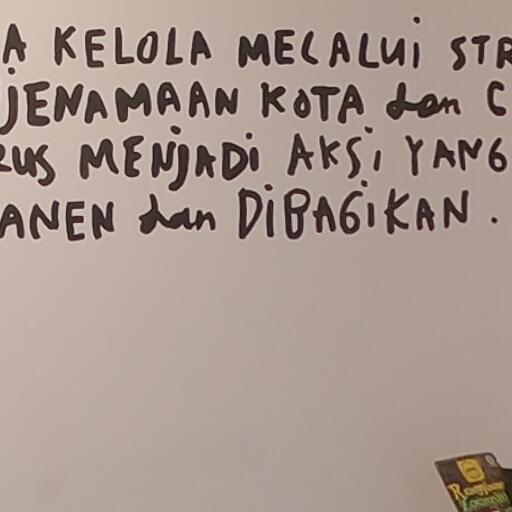 A KELOLA MELALUi STR
JENAMAAN KOTA dan C
RUS MENJADi AKSi YANG
ANEN dan DiBAGiKAN.